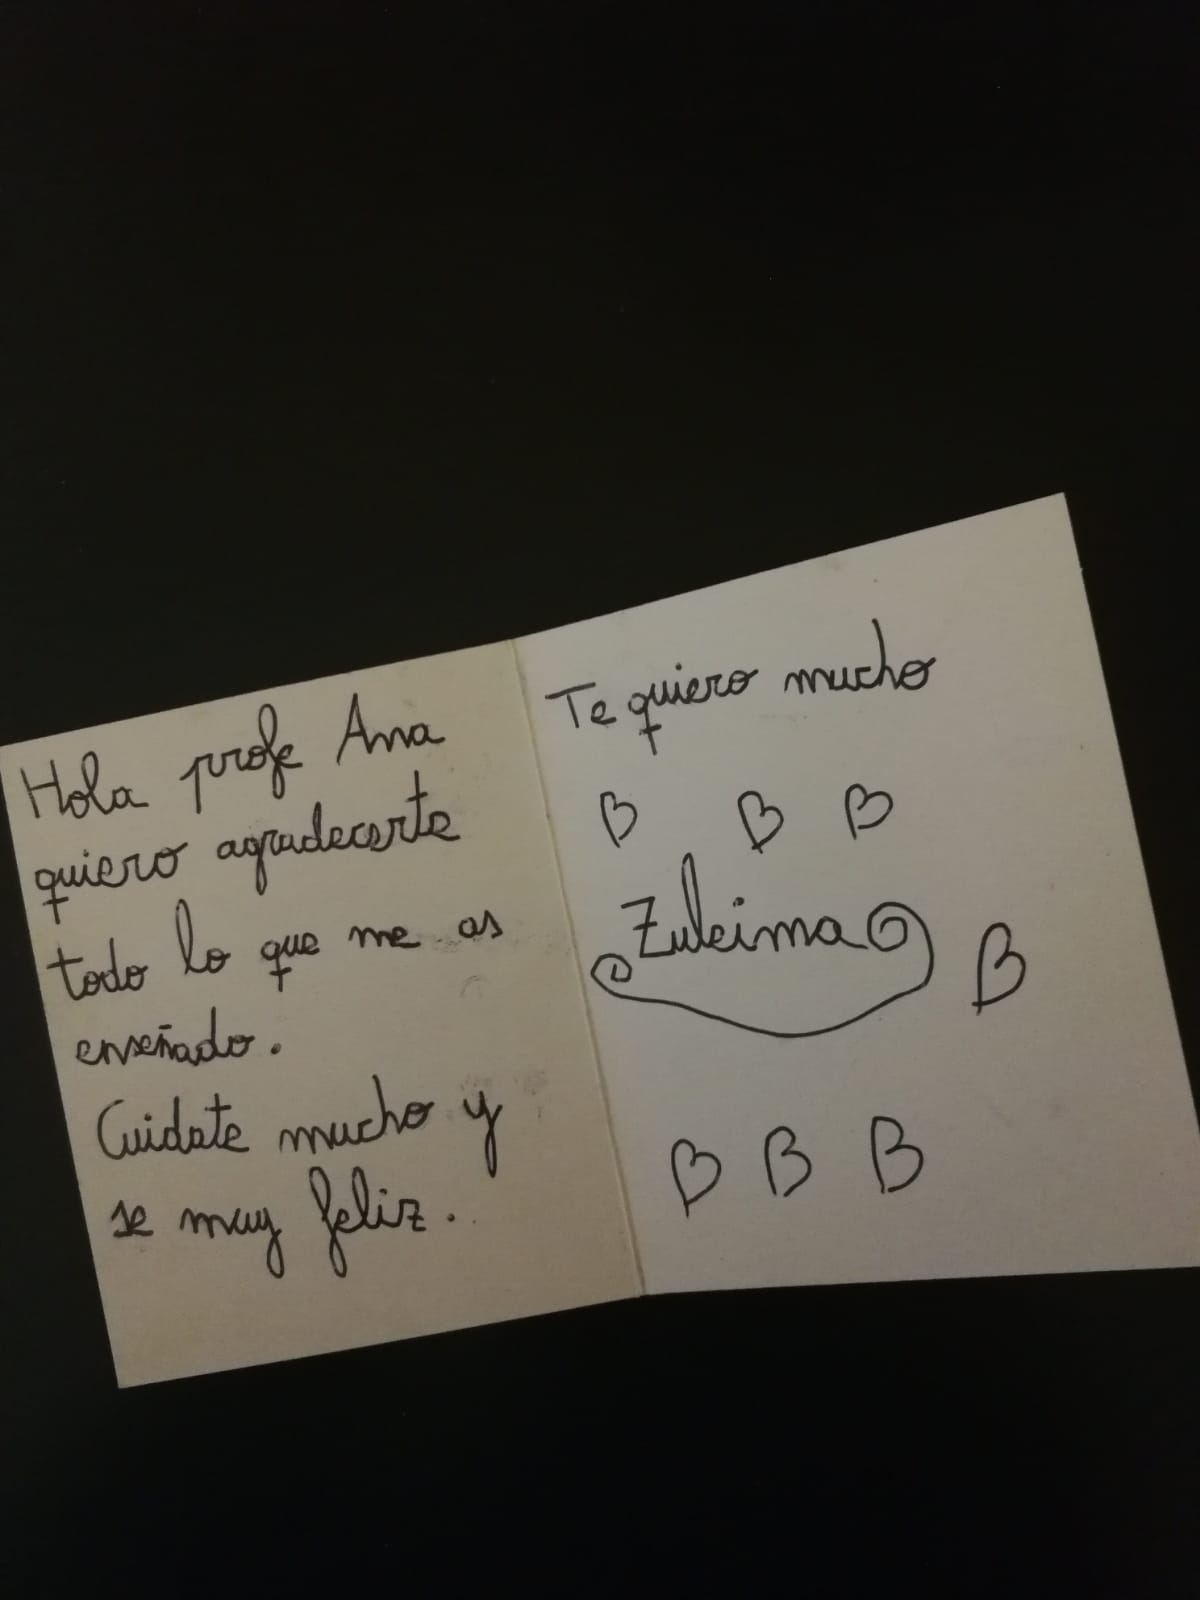 Hola profe Ana
quiero agradecerte
todo lo que me as
enseñado.
Cuidate mucho y
se muy feliz.
Te quiero mucho
Zuleima